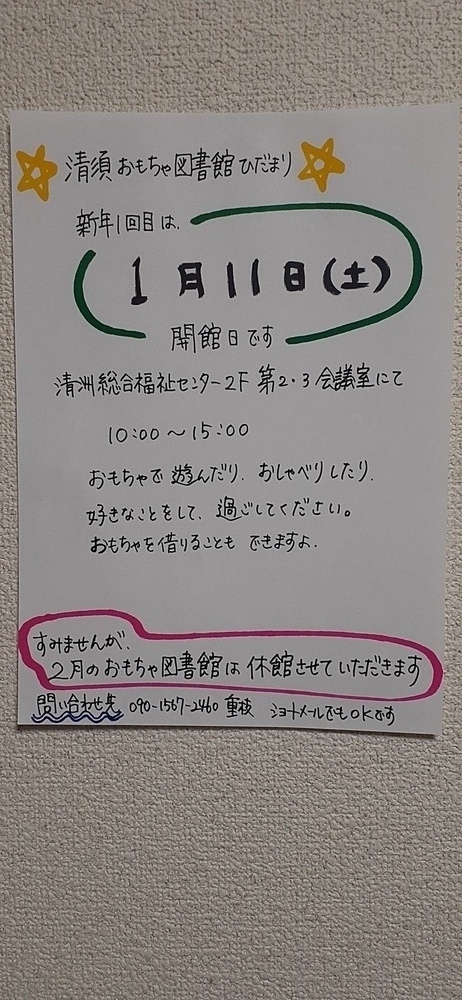 清須おもちゃ図書館ひだまり
新年1回目は、
1月11日(土)
開館日です
清洲総合福祉センター2F 第2・3会議室にて
10:00～15:00
おもちゃで遊んだり、おしゃべりしたり、
好きなことをして、過ごしてください。
おもちゃを借りることもできますよ。
すみませんが、
2月のおもちゃ図書館は休館させていただきます
問い合わせ先 090-1567-2460 重枝 ショートメールでもOKです